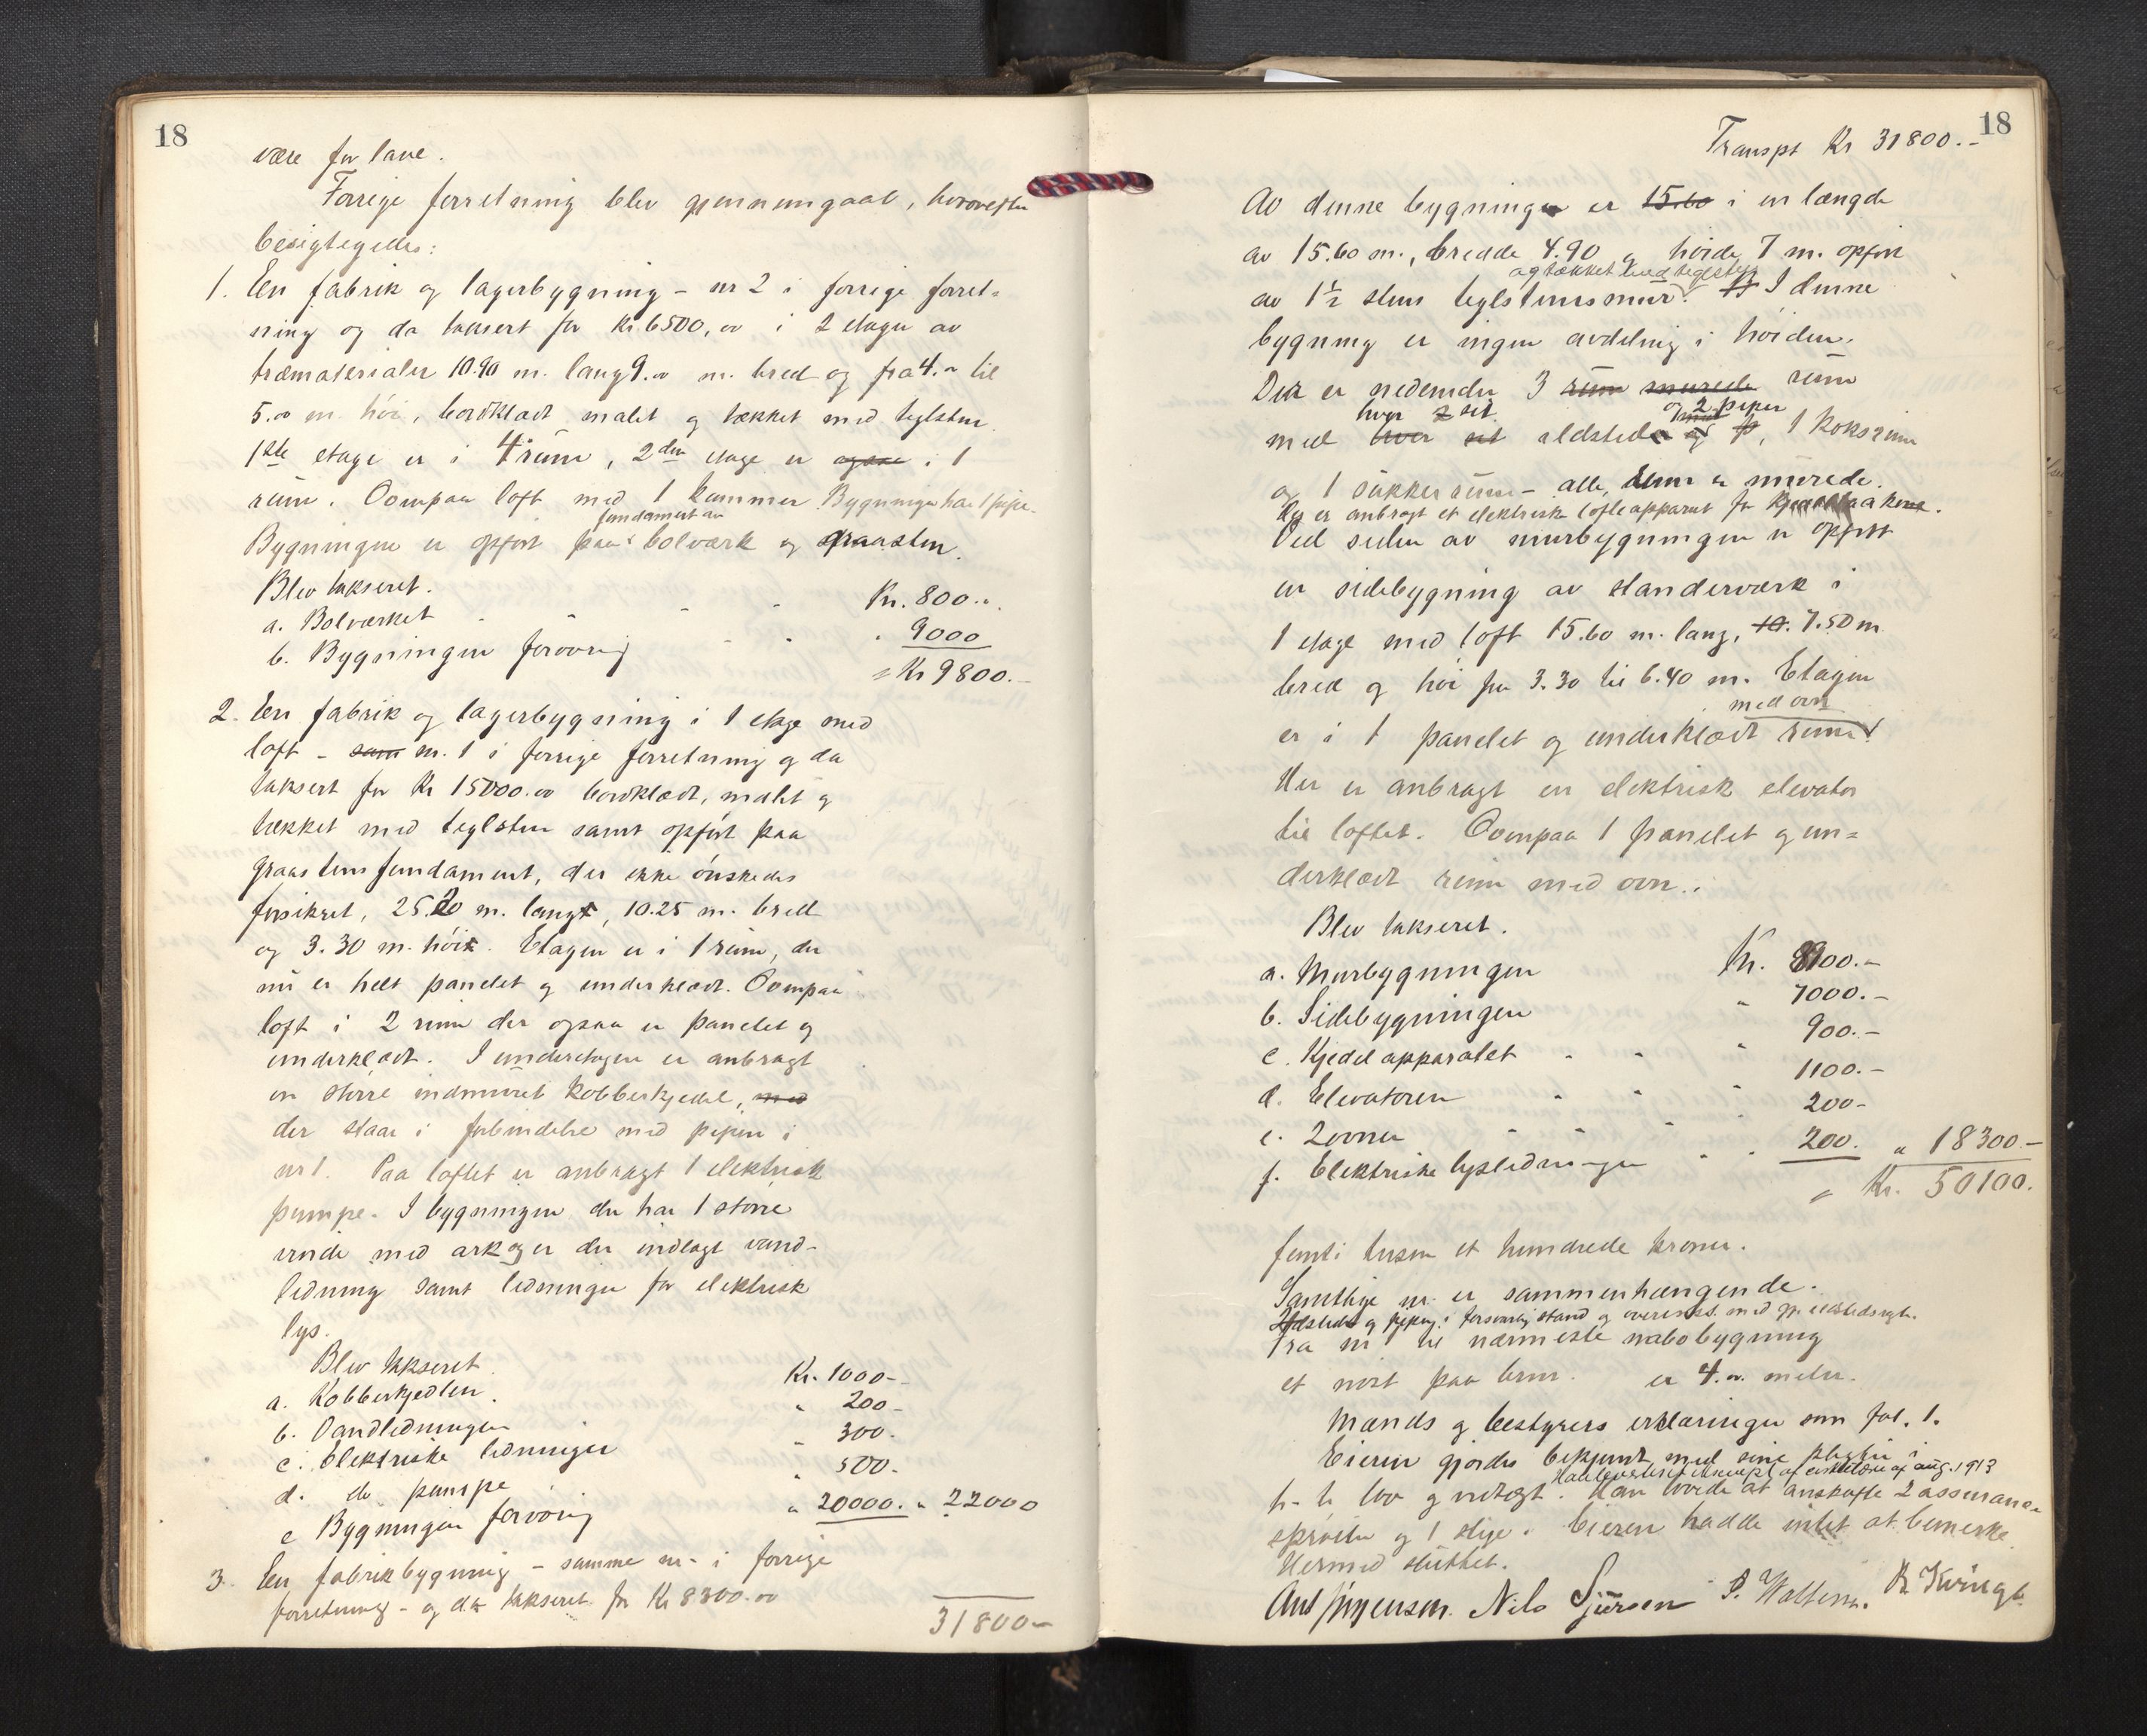 18
være for lave.
Forrige forretning blev gjennemgaat, hvorefter
besigtigedes:
1. En fabrik og lagerbygning - nr 2 i forrige forret=
ning og da taksert for Kr. 6500,00 i 2 etager av
træmaterialer 10.90 m. lang 9.00 m. bred og fra 4.00 til
5.00 m. høi, bordklædt malet og tækket med teglsten
1ste etage er i 4 rum, 2den etage er ogsaa i 1
rum. Ovenpaa loft med 1 kammer. Bygningen har 1 pipe.
fundament av
Bygningen er opført paa bolværk og graasten.
Blev takseret.
a. Bolværket Kr. 800.00
b. Bygningen forøvrig " 9000
= Kr 9800.-
2. En fabrik og lagerbygning i 1 etage med
loft - som nr. 1 i forrige forretning og da
taksert for Kr 15000.00 bordklædt, malet og
tækket med teglsten samt opført paa
graastensfundament, der ikke ønskedes
forsikret, 25.20 m. langt, 10.25 m. bred
og 3.30 m. høit. Etagen er i 1 rum, der
nu er helt panelet og underklædt. Ovenpaa
loft i 2 rum der ogsaa er panelet og
underklædt. I underetagen er anbragt
en større indmuret kobberkjedel, med
der staar i forbindelse med pipen i
nr 1. Paa loftet er anbragt 1 elektrisk
pumpe. I bygningen der har 1 større
vinde med ark og er der indlagt vand-
ledning samt ledninger for elektrisk
lys.
Blev takseret
a. Kobberkjedlen. Kr. 1000--
b. Vandledningen " 200-
c. Elektriske ledninger " 300-
d. do pumpe " 500-
e Bygningen forøvrig " 20000. " 22000
3. En fabrikbygning - samme nr. i forrige
forretning - og da takseret for Kr 8300.00
31800-
18
Transpt Kr 31800.-
Av denne bygningen er 15.60 i en længde
av 15.60 m., bredde 4.90 og høide 7 m. opført
og tækket med teglsten
av 1½ stens teglstensmur. I denne
bygning er ingen avdeling i høiden.
Der er nedenunder 3 rum murede rum
hver 2 set og 2 piper
med hver set ildsteder og p, 1 koksrum
og 1 sukkerrum - alle rum er murede.
Her er anbragt et elektrisk løfteapparat for
Ved siden av murbygningen er opført
en sidebygning av standerværk i
1 etage med loft 15.60 m. lang, 10. 7.50 m
bred og høi fra 3.30 til 6.40 m. Etagen
med ovn
er i 1 panelet og underklædt rum.
Her er anbragt en elektrisk elevator
til loftet. Ovenpaa 1 panelet og un=
derklædt rum med ovn.
Blev takseret.
a. Murbygningen Kr. 8900.-
b. Sidebygningen " 7000.-
c. Kjedelapparatet " 900.-
d. Elevatoren " 1100.-
e. 2 ovner " 200-
f. Elektriske lysledninger " 200. " 18300-
= Kr. 50100.
femti tusen et hundrede kroner.
Samtlige nr. er sammenhængende.
Ildsteder og piper i forsvarlig stand og overensst. med
Fra nr 1 til nærmeste nabobygning
et nøst paa brur. er 4.00 meter.
Mænds og bestyrers erklæringer som fol. 1.
Eieren gjordes bekjent med sine pligter i
eksempl. af cirkulære af aug. 1913
h. t. lov og vedtægt. Han lovede at anskaffe 2 assurance
sprøiter og 1 stige. Eieren hadde intet at bemerke.
Hermed sluttet.
Ant Jørgensen. Nils Sjursen P. Woltens.